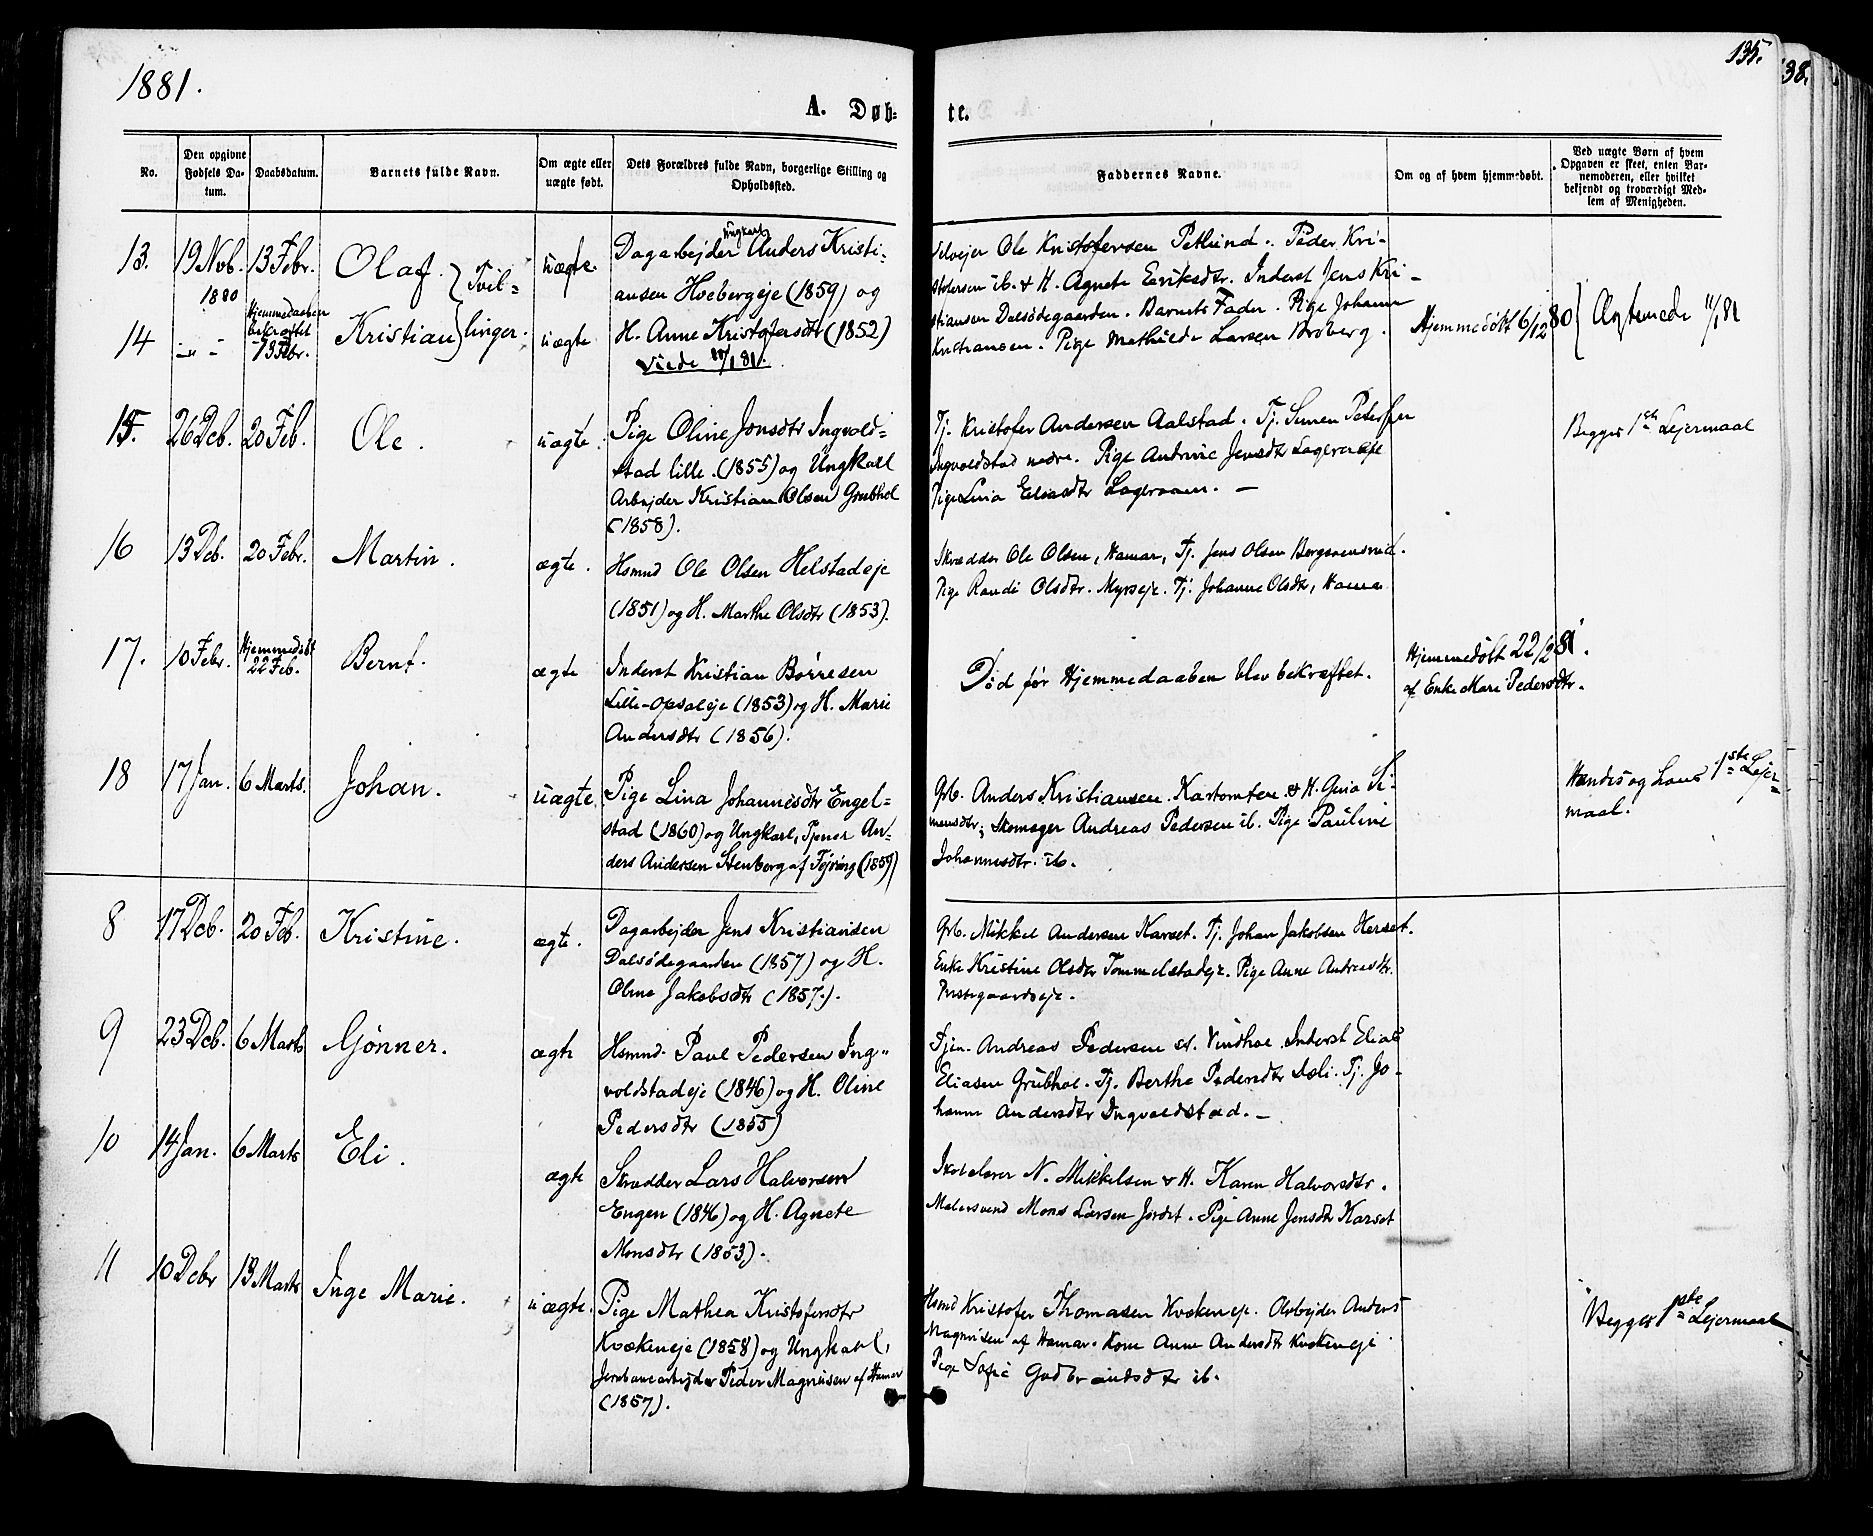 1881.
135.
38.
A. Døb-
te.
No.
Den opgivne
Fødsels Da-
tum.
Daabsdatum.
Barnets fulde Navn.
Om ægte eller
uægte født.
Dets Forældres fulde Navn, borgerlige Stilling og
Opholdssted.
Faddernes Navne.
Om og af hvem hjemmedøbt.
Ved uægte Børn af hvem
Opgaven er skeet, enten Bar-
nemoderen, eller hvilket
bekjendt og troværdigt Med-
lem af Menigheden.
13. 19 Nvb. 1880 13 Febr. Olaf. } Tvil= uægte.
Dagarbejder Ungkarl Anders Kristi=
ansen Hoebergeje (1859) og
H. Anne Kristofersdtr (1852)
Viede 11/1 81.
Selvejer Ole Kristofersen Petlund. Peder Kri-
stofersen ib. & H. Agnete Eeriksdtr. Inderst Jens Kri-
stiansen Dalsødegaarden. Barnets Fader. Pige Johanne
Kristiansen. Pige Mathilde Larsen Broberg.
14 -„- Hjemmedaaben
bekræftet
13 Febr.
Kristian } linger. uægte
Hjemmedøbt 6/12 80
Ægtemede 11/1 81
15. 26 Deb. 20 Feb. Ole. uægte.
Pige Oline Jonsdtr Ingvold=
stad lille. (1855) og Ungkarl
Arbejder Kristian Olsen Grubhol
(1858).
Tj. Kristofer Andersen Aalstad. Tj. Simen Petersen
Ingvoldstad nedre. Pige Andrine Jensdtr
Pige Lina Eliasdtr Lageraaen. —
Begges 1ste Lejermaal
16 13 Deb. 20 Febr. Martin. ægte.
Hsmnd Ole Olsen Helstadeje
(1851) og H. Marthe Olsdtr (1853).
Skrædder Ole Olsen, Hamar, Tj. Jens Olsen
Pige Randi Olsdtr. Myrseje. Tj. Johanne Olsdtr, Hamar
17. 10 Febr. Hjemmedøbt
22 Feb.
Bernt. ægte
Inderst Kristian Børresen
Lille-Opsaleje (1853) og H. Marie
Andersdtr (1856).
Død før Hjemmedaaben blev bekræftet.
Hjemmedøbt 22/2 81.
af Enke Mari Pedersdtr.
18 17 Jan. 6 Marts. Johan. uægte.
Pige Lina Johannesdtr Engel=
stad (1860) og Ungkarl, Tjener An-
ders Andersen Stenborg af (1859)
Grb. Anders Kristiansen Kartomten & H. Gina Si-
mensdtr; Skomager Andreas Pedersen ib. Pige Pauline
Johannesdtr. ib.
Hendes og hans 1ste Lejer=
maal.
8 17 Deb. 20 Feb. Kristine. ægte.
Dagarbejder Jens Kristiansen
Dalsødegaarden (1857) og H.
Oline Jakobsdtr (1857.).
Grb. Mikkel Andersen Karset. Tj. Johan Jakobsen Herset.
Enke Kristine Olsdtr Tommelstadeje. Pige Anne Andreasdtr.
Prestegaardseje.
9 23 Deb. 6 Marts Gjønner. ægte
Hsmnd. Paul Pedersen Ing„
voldstadeje (1846) og H. Oline
Pedersdtr (1855)
Tjen. Andreas Pedersen Vindhol. Inderst Elias
Eliasen Grubhol. Tj. Berthe Pedersdtr Tj. Jo-
hanne Andersdtr Ingvoldstad. —
10 14 Jan. 6 Marts Eli. ægte
Skrædder Lars Halvorsen
Engen (1846) og H. Agnete
Monsdtr (1853).
Skolelærer N. Mikkelsen & H. Karen Halvorsdtr.
Malersvend Mons Larsen Jordet. Pige Anne Jensdtr Karset
11 10 Debr 13 Marts Inge Marie. uægte.
Pige Mathea Kristofersdtr
Kvækeneje (1858) og Ungkarl,
Jernbanearbejder Peder Magnusen af Hamar
(1857).
Hsmd Kristofer Thomasen Kvækeneje. Arbejder Anders
Magnusen af Hamar. Kone Anne Andersdtr Kvækeneje
Pige Sofie Gudbrandsdtr ib.
Begges 1ste Lejermaal